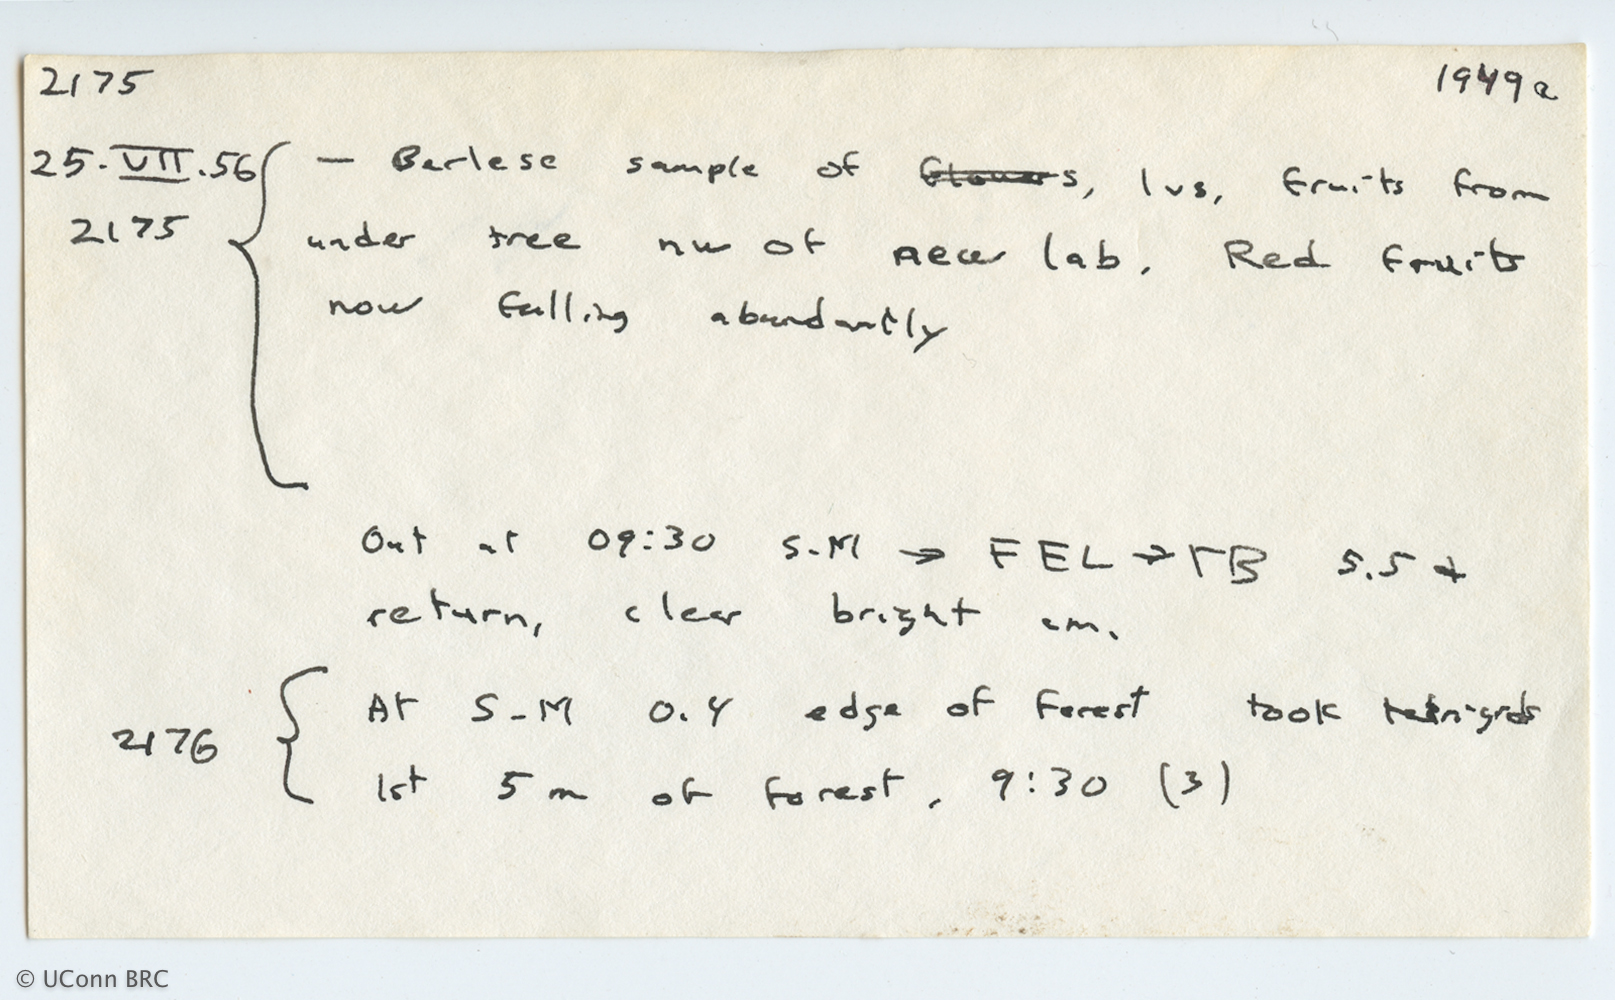 2175 1949a
25.VII.56 — Berlese sample of flowers, lvs, fruits from
2175 under tree nw of new lab. Red fruits
now falling abundantly
Out at 09:30 S-M → FEL → TB 5.5 +
return, clear bright am.
At S-M 0.4 edge of forest took tetrigids
2176 1st 5m of forest, 9:30 (3)
© UConn BRC